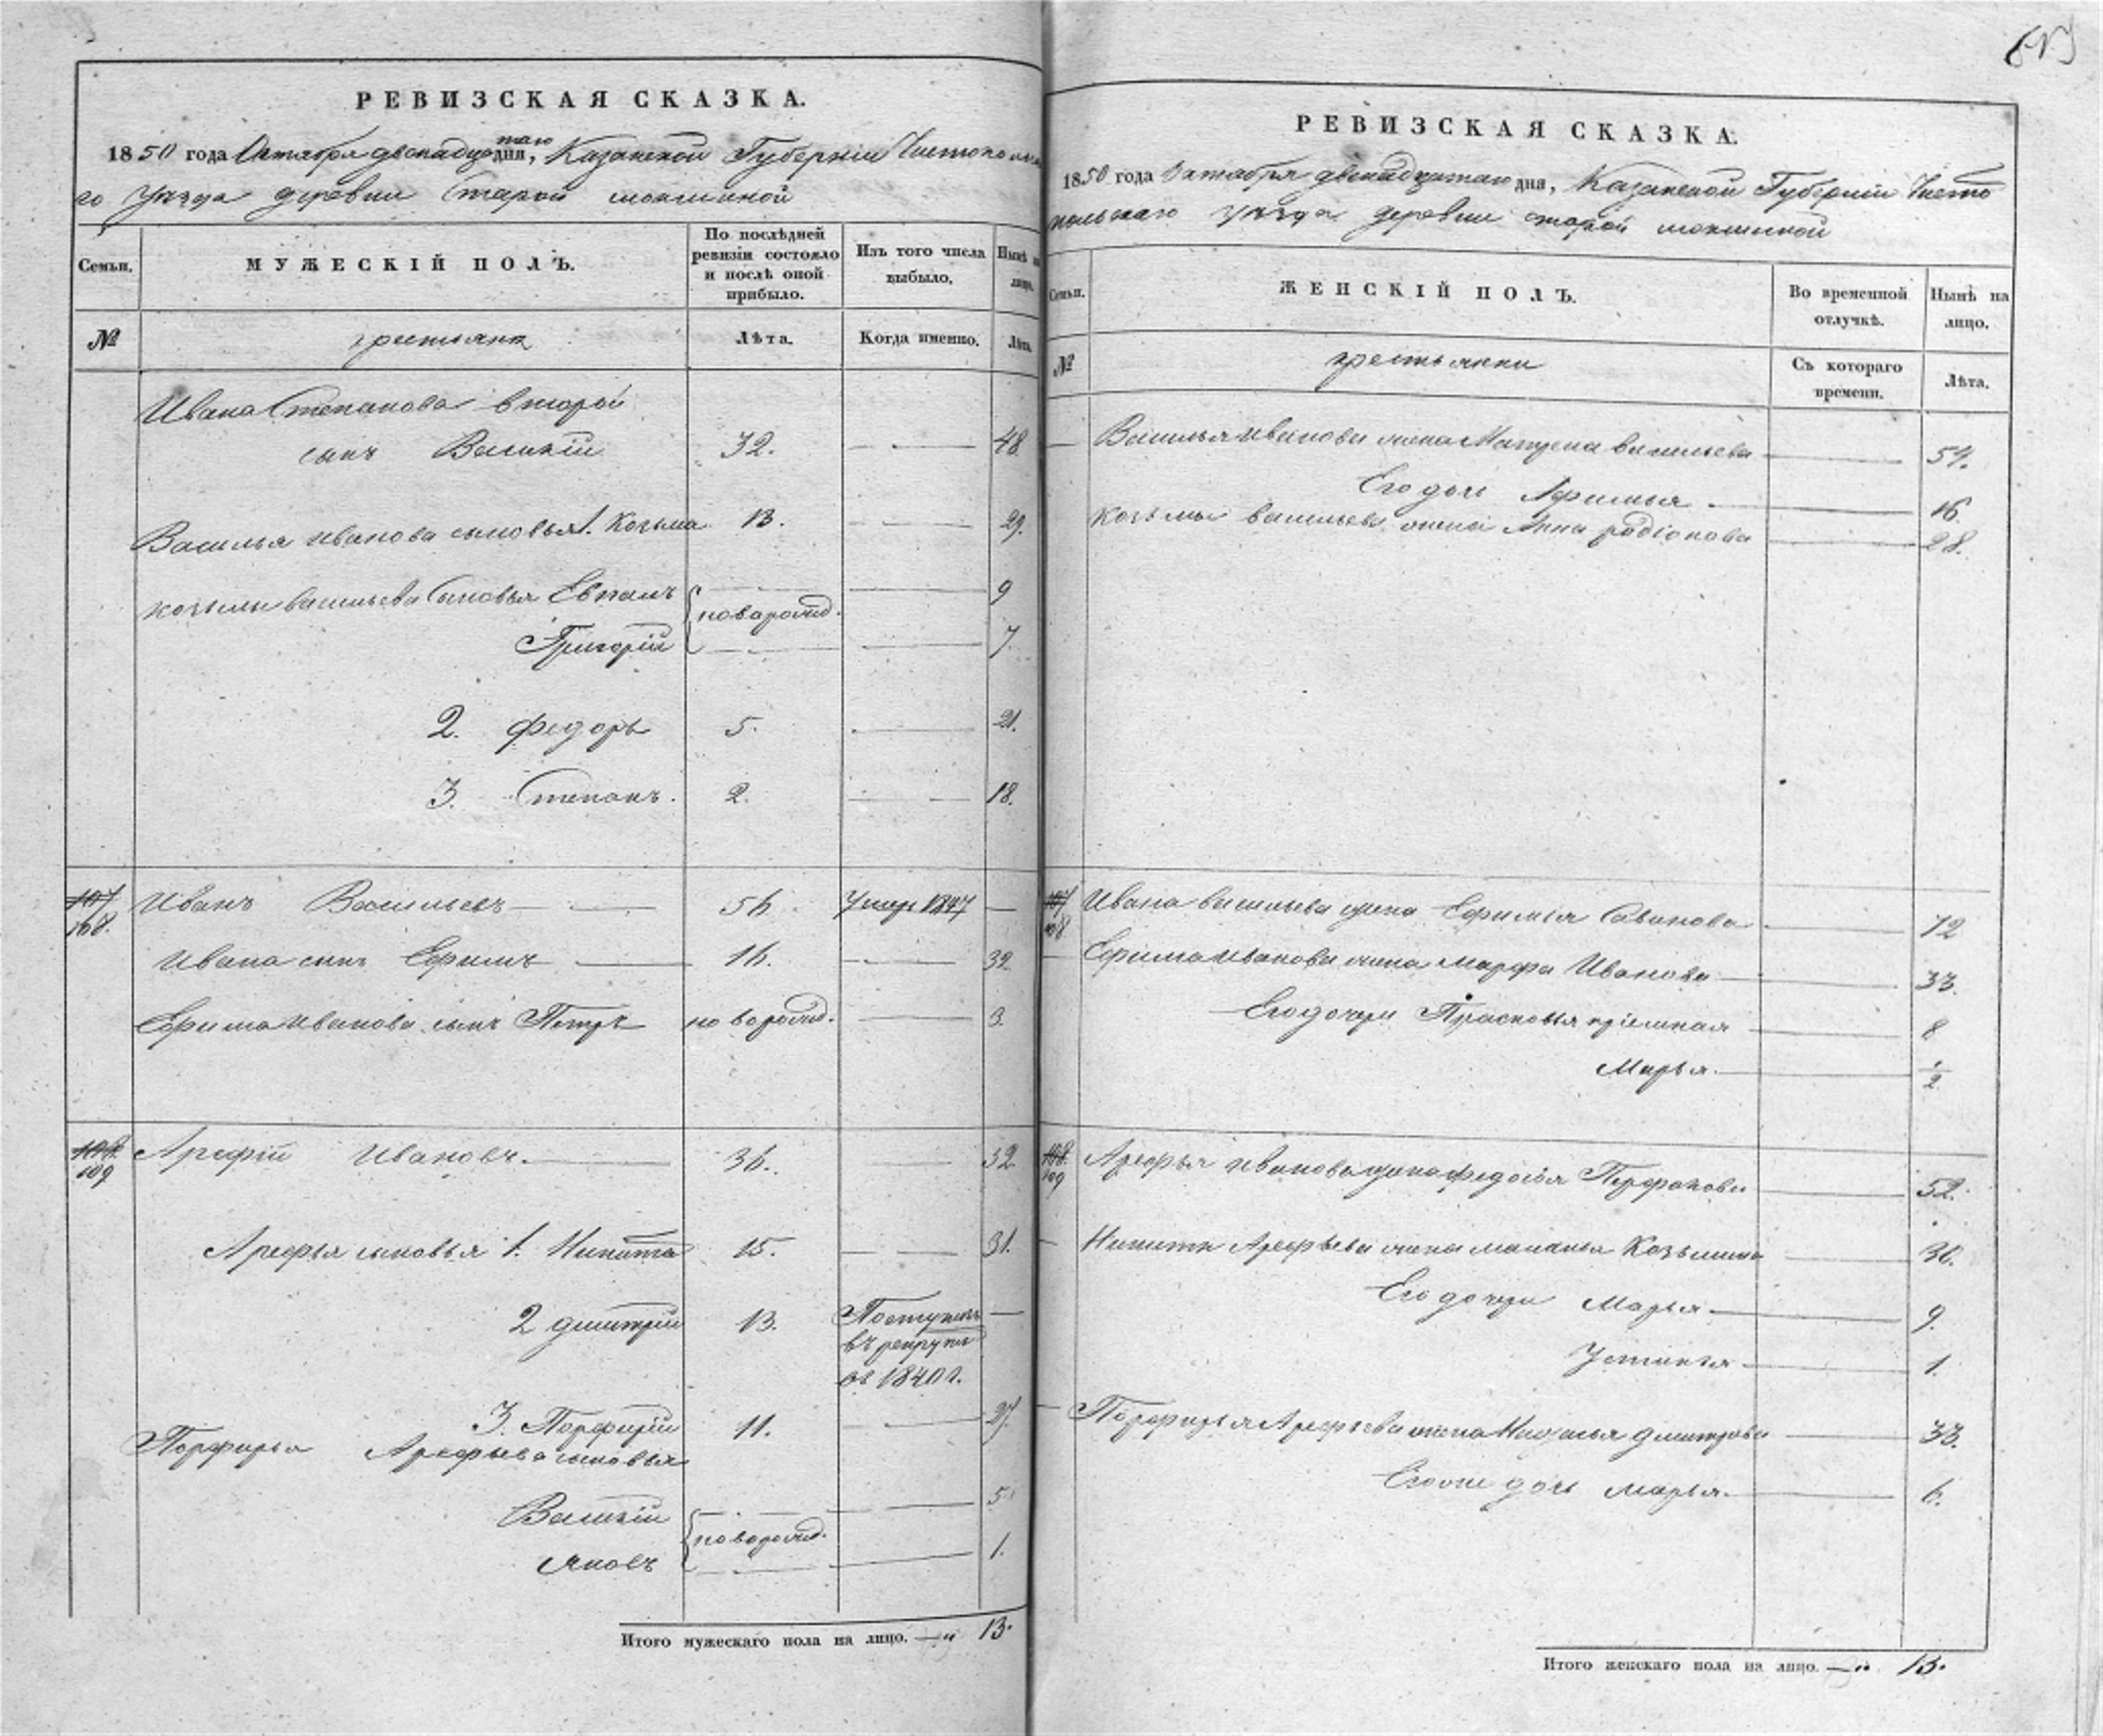 РЕВИЗСКАЯ СКАЗКА.
1850 года Октября двенадцатаго дня, Казанской Губернiи Чистопольска
го уѣзда деревни Старой мокшиной
Семьи.
МУЖЕСКIЙ ПОЛЪ.
По послѣдней ревизiи состояло и послѣ оной прибыло.
Изъ того числа выбыло.
Нынѣ на лицо.
№
крестьянъ
Лѣта.
Когда именно.
Лѣта.
Ивана Степанова второй
сынъ Василiй 32. 48
Василья Иванова сыновья 1. Козьма 13. 29.
Козьмы васильева Сыновья 9
новорожд.
Григорiй 7.
2. Федоръ 5. 21.
3. Степанъ. 2. 18.
107 108. Иванъ Васильевъ 56 Умеръ 1847
Ивана сынъ Ефимъ 16. 32
Ефима иванова сынъ Петръ новорожд. 3.
108. 109 Арефiй Ивановъ. 36. 52
Арефья сыновья 1. Никита 15. 31.
2 дмитрiй 13. Поступилъ
въ рекруты
въ 1840 г.
3. Порфирiй 11. 27.
Порфирья Арефьева сыновья
Василiй 5
новорожд.
Яковъ 1.
Итого мужескаго пола на лицо. — „ 13.
РЕВИЗСКАЯ СКАЗКА.
1850 года Октября двенадцатаго дня, Казанской Губернiи Чисто
польскаго уѣзда деревни старой мокшиной
Семьи.
ЖЕНСКIЙ ПОЛЪ.
Во временной отлучкѣ.
Нынѣ на лицо.
№
крестьянки
Съ котораго времени.
Лѣта.
Василья иванова жена Матрена васильева 54.
Его дочь Афимья 16.
Козьмы васильева жена Анна родiонова 28.
107 108 Ивана васильева жена Ефимья Савинова 72
Ефима иванова жена марфа Иванова 33.
Его дочери Прасковья прiемная 8
Марья. 1/2
108. 109 Арефья иванова жена федосья 52.
Никиты Арефьева жена маланья Козьмина 36.
Его дочери Марья 9.
Устинья 1.
Порфирья Арефьева жена Наталья дмитрова 33.
Его же дочь марья. 6.
Итого женскаго пола на лицо. — „ 13.